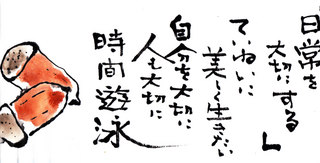 日常を
大切にする
ていねいに
美しく生きたい
自分を大切に
人も大切に
時間遊泳